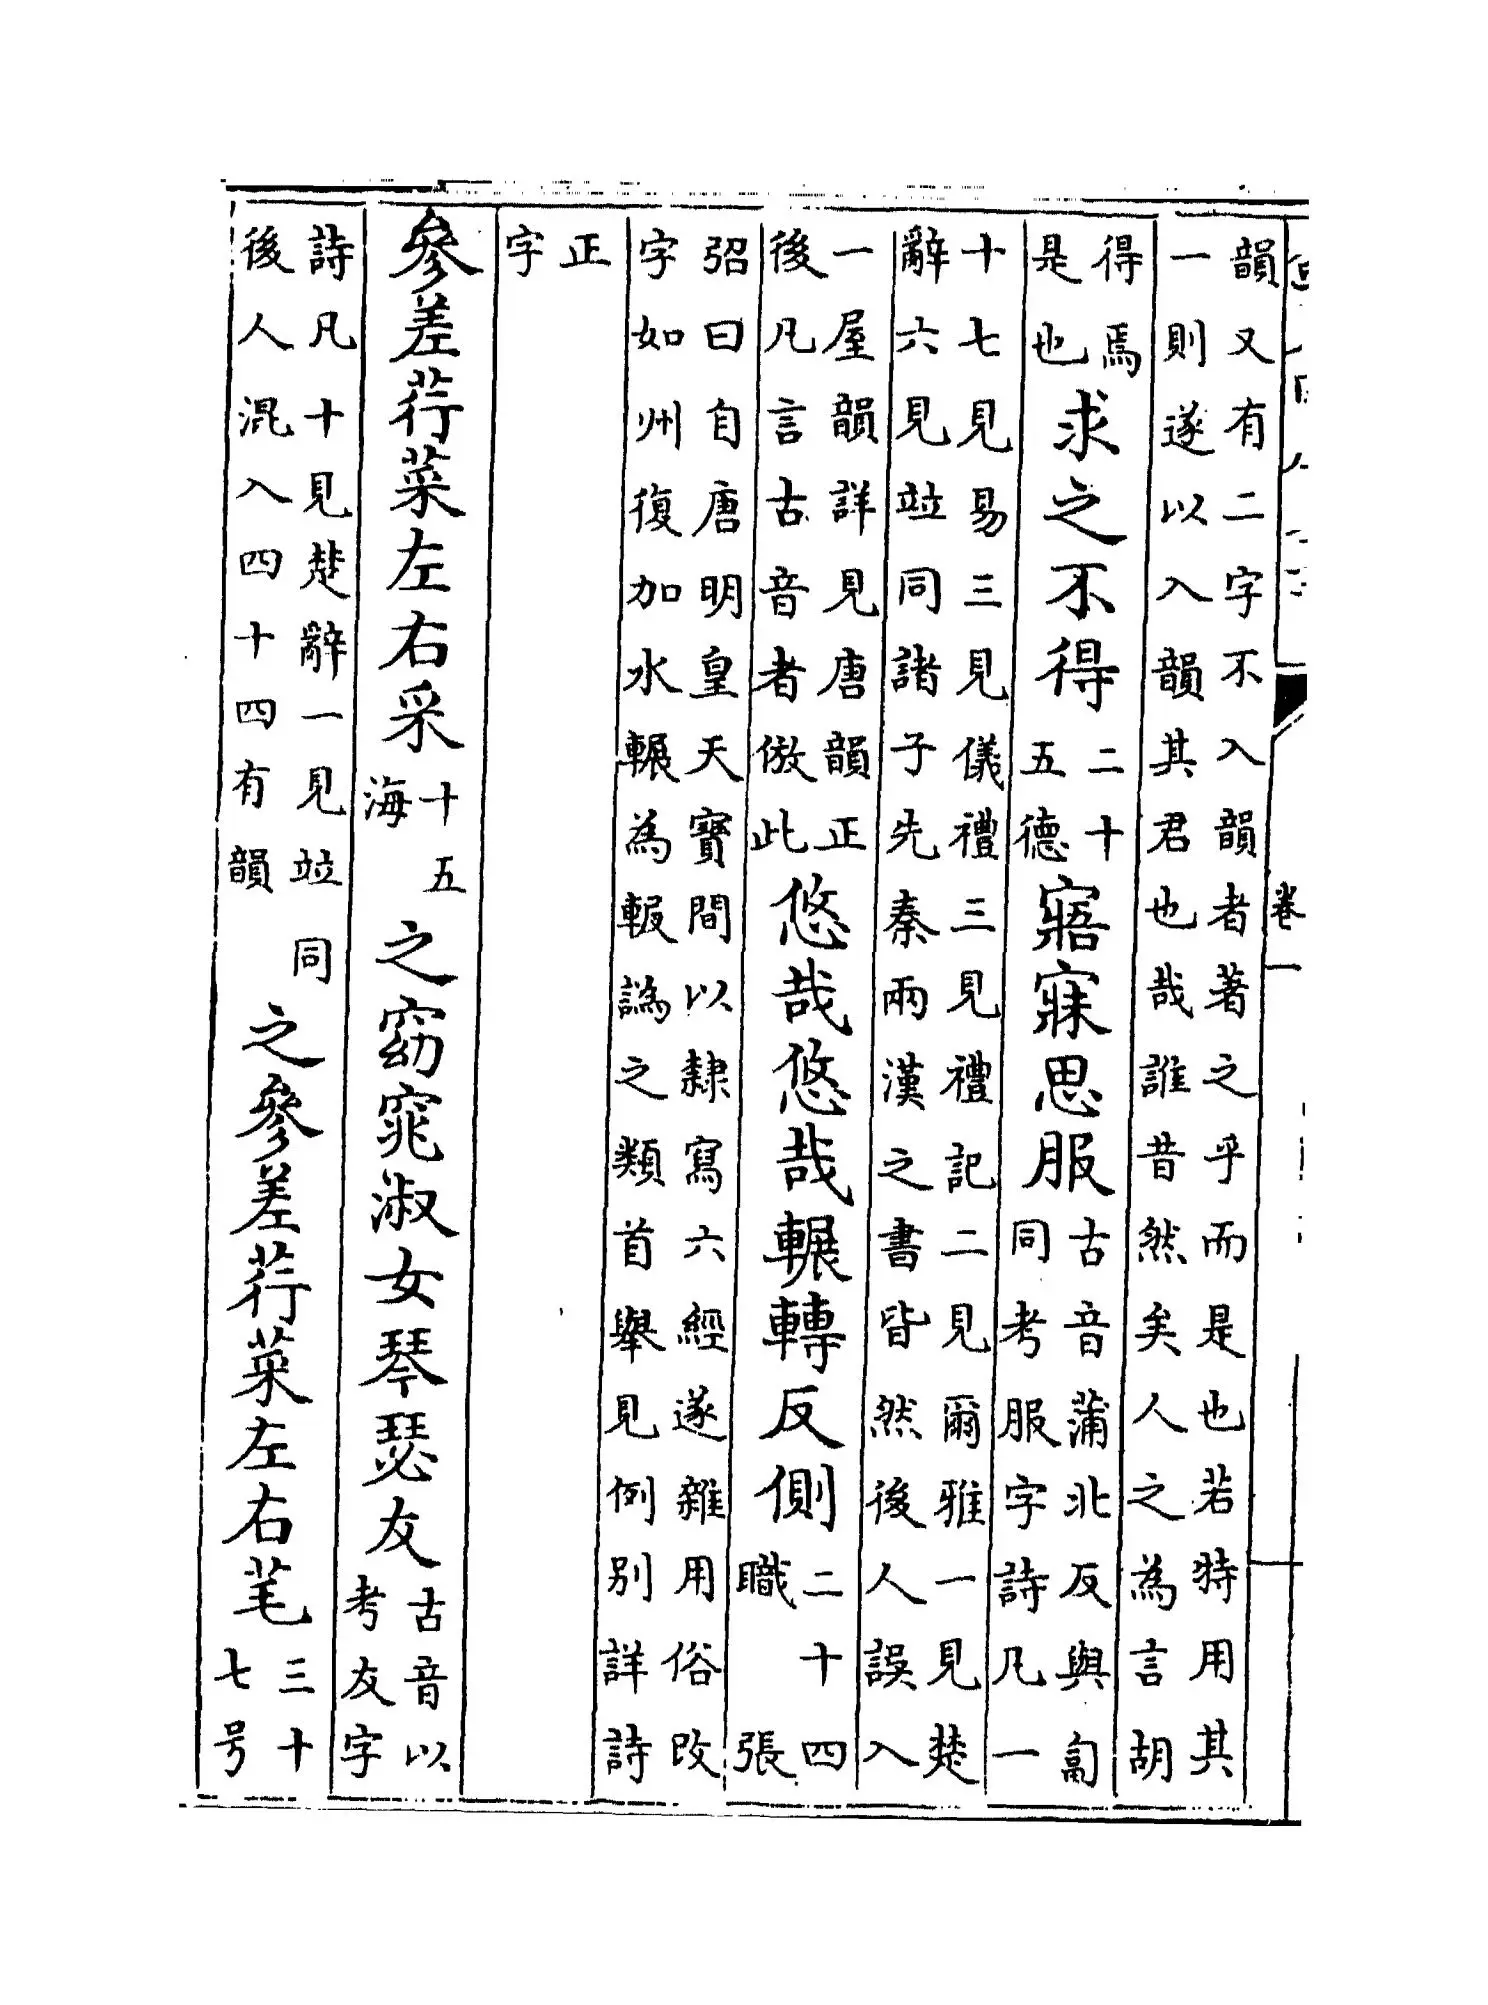 韻又有二字不入韻者著之乎而是也若特用其
一則遂以入韻其君也哉誰昔然矣人之為言胡
得焉是也求之不得二十五德寤寐思服古音蒲北反與匐同考服字詩凡一
十七見易三見儀禮三見禮記二見爾雅一見楚
辭六見竝同諸子先秦兩漢之書皆然後人誤入
一屋韻詳見唐韻正後凡言古音者倣此悠哉悠哉輾轉反側二十四職 張
弨曰自唐明皇天寶間以隸寫六經遂雜用俗改
字如州復加水輾為譌之類首舉見例別詳詩
正
字
參差荇菜左右采十五海之窈窕淑女琴瑟友古音以考友字
詩凡十見楚辭一見竝同後人混入四十四有韻之參差荇菜左右芼三十七号
卷一